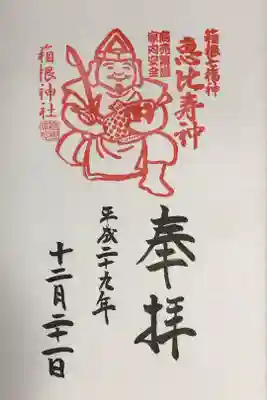 箱根七福神
恵比寿神
商売繁盛
家内安全
箱根神社
奉拝
平成二十九年
十二月二十一日